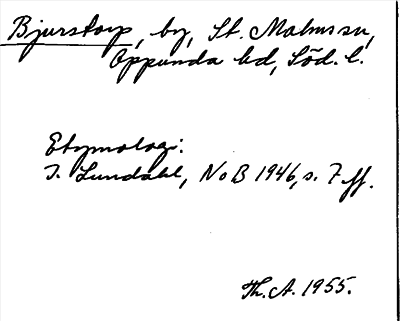 Bjurstorp, by, St. Malms sn,
Oppunda hd, Söd. l.
Etymologi:
I. Lundahl, NoB 1946, s. 7 ff.
Th. A. 1955.